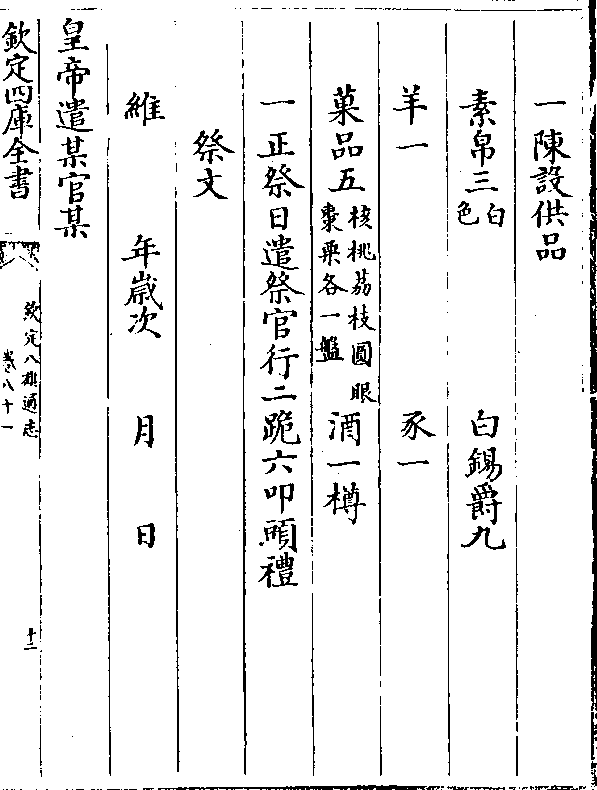 一陳設供品
素帛三白色 白錫爵九
羊一 豕一
菓品五核桃荔枝圓眼棗栗各一盤 酒一樽
一正祭日遣祭官行二跪六叩頭禮
祭文
維 年歲次 月 日
皇帝遣某官某
欽定四庫全書
欽定八旗通志
卷八十一
十二